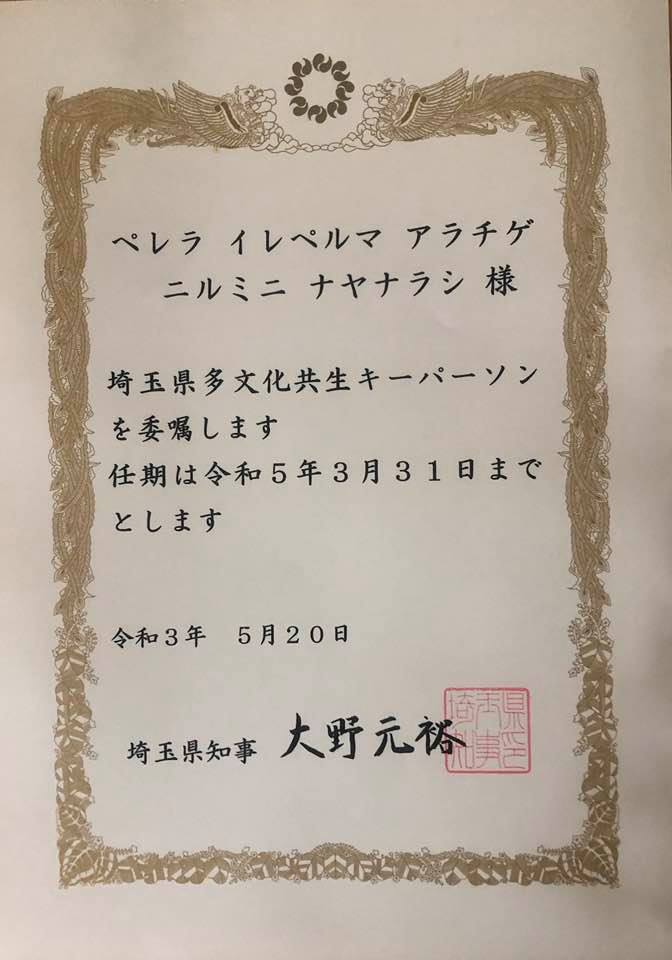 ペレラ イレペルマ アラチゲ
ニルミニ ナヤナラシ 様
埼玉県多文化共生キーパーソン
を委嘱します
任期は令和５年３月３１日まで
とします
令和３年　５月２０日
埼玉県知事 大野元裕
埼玉県
知事印